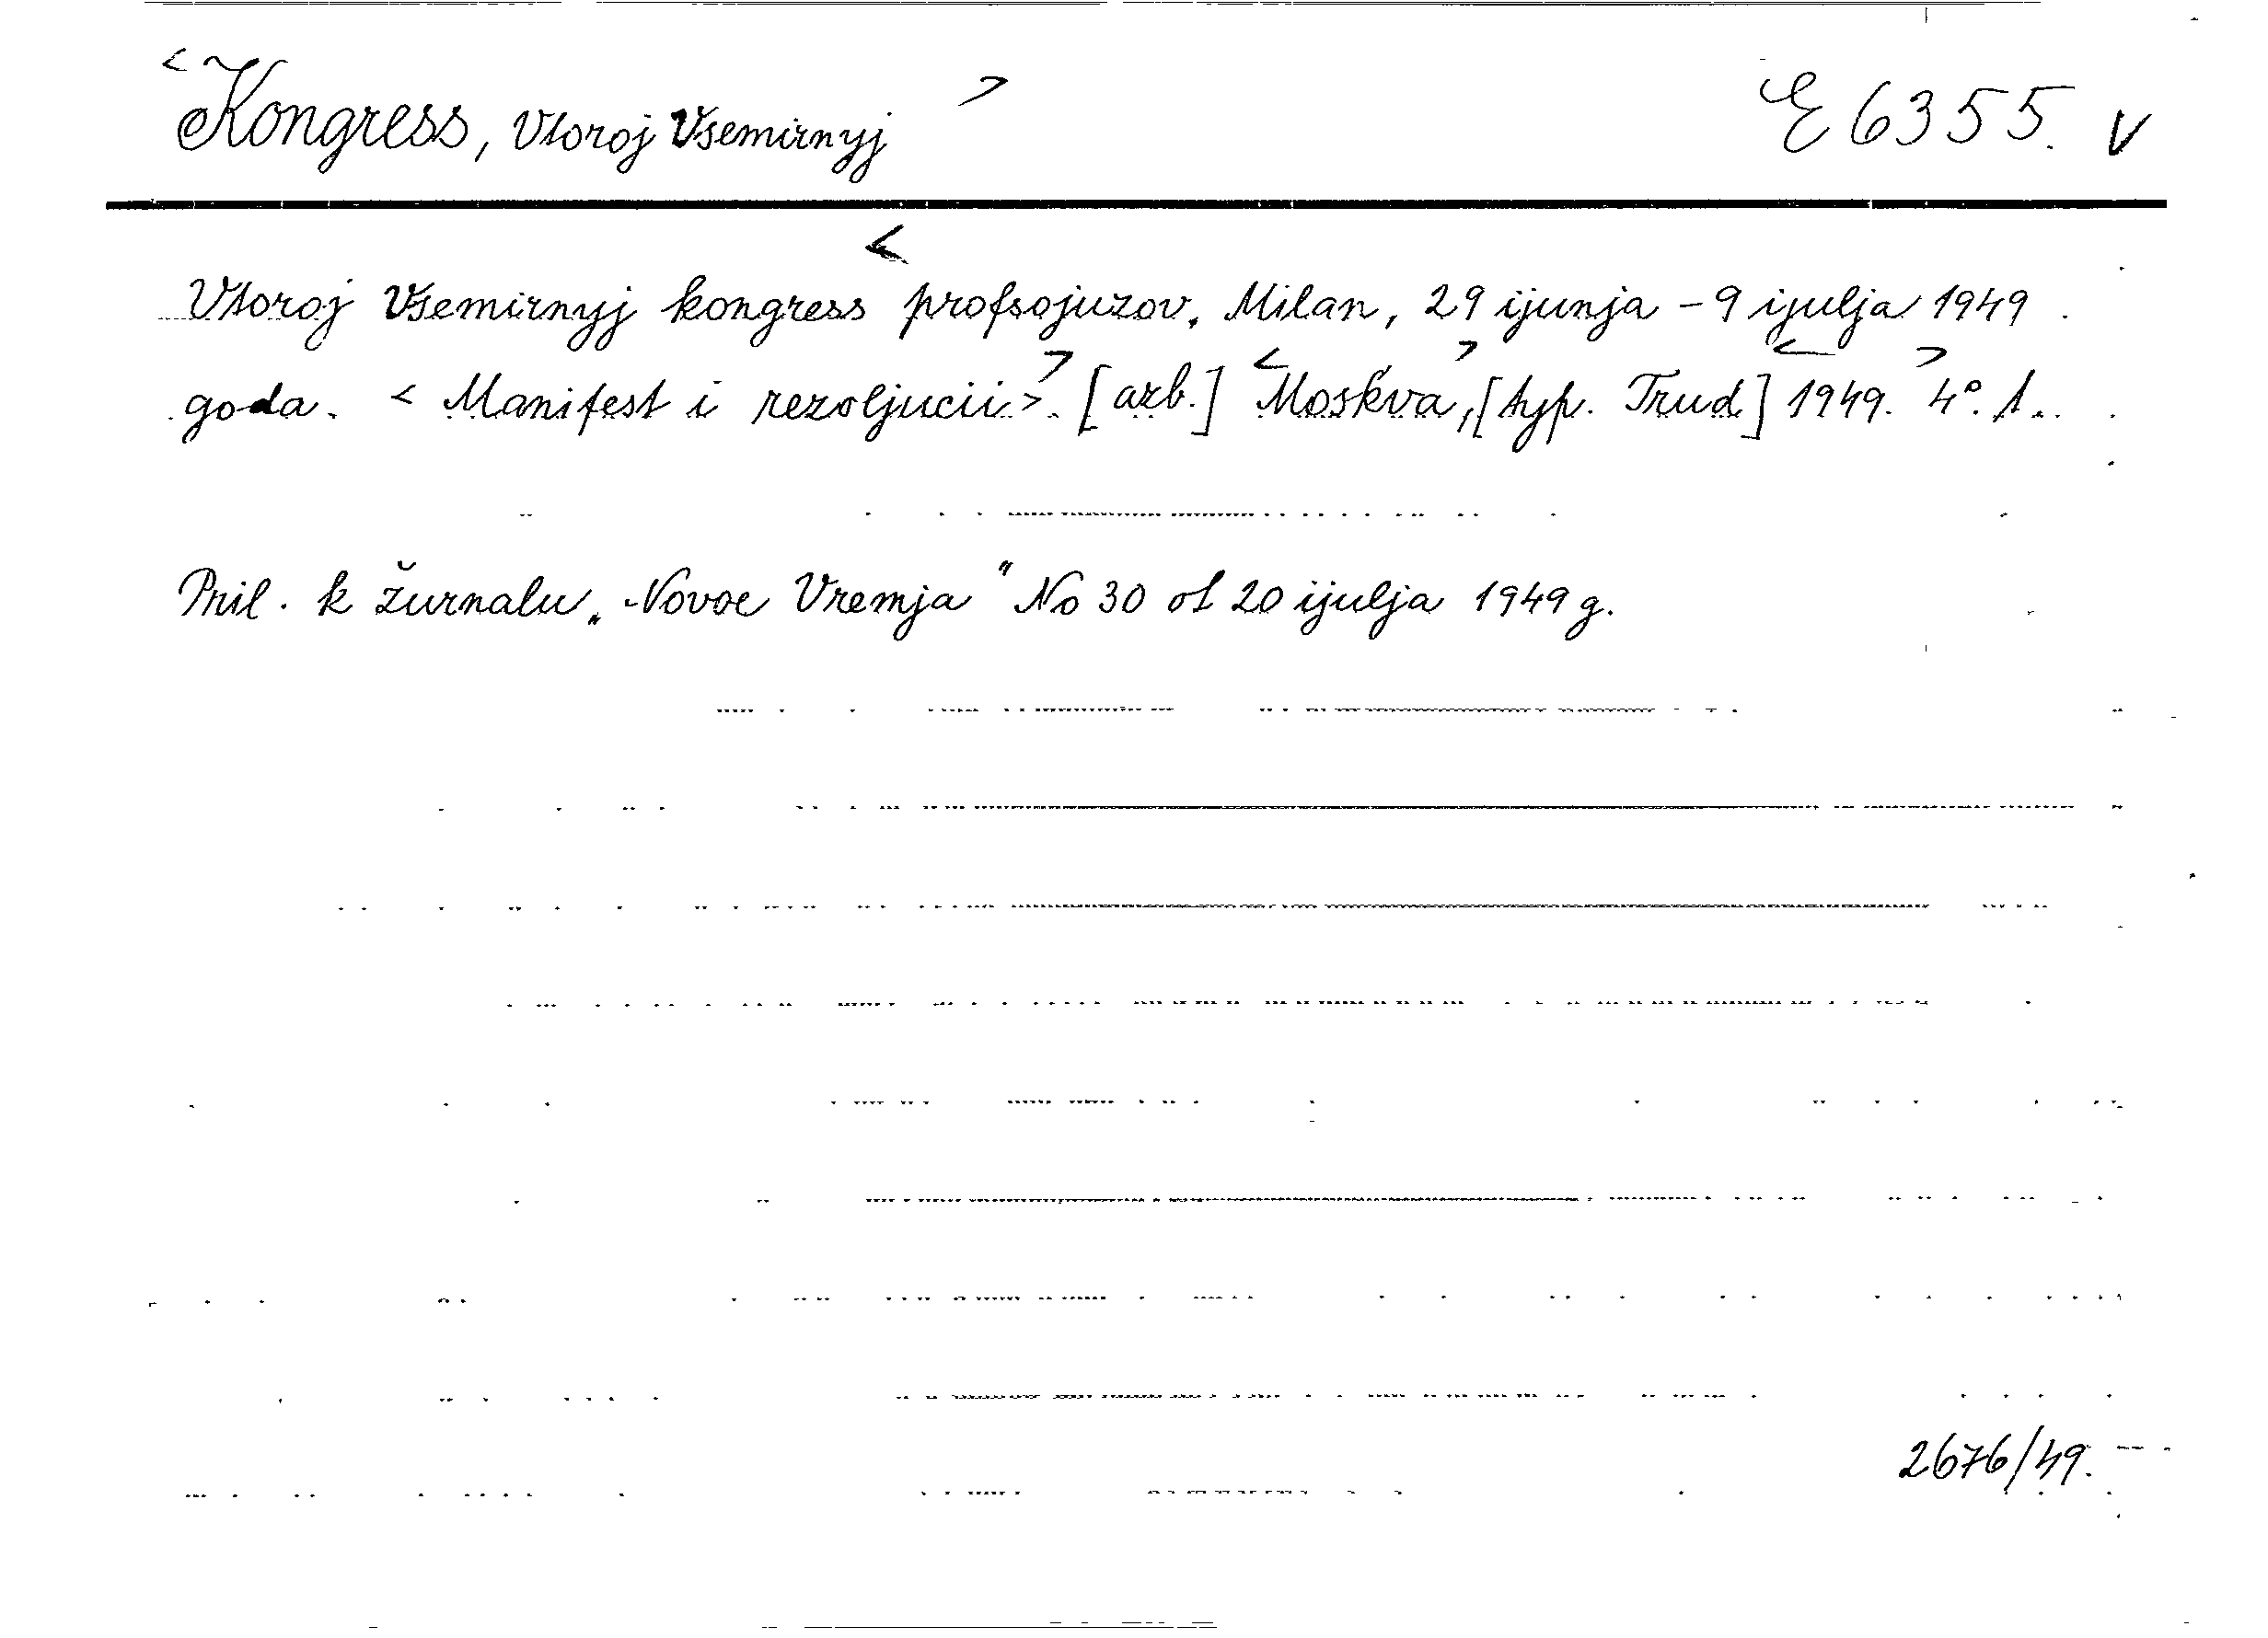 <Kongress, Vtoroj Vsemirnyj> E 6355. V
Vtoroj Vsemirnyj kongress <profsojuzov, Milan, 29 ijunja - 9 ijulja 1949
goda. <Manifest i rezoljucii>.> [azb.] <Moskva>, [typ. Trud] <1949.> 4°. 1.
Pril. k žurnalu „Novoe Vremja“ No 30 ot 20 ijulja 1949 g.
2676/49.